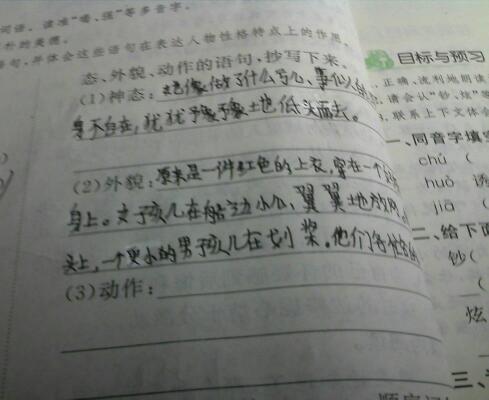 词语。读准“嚼、强”等多音字。
朴的美德。
语句,并体会这些语句在表达人物性格特点上的作用。
态、外貌、动作的语句,抄写下来。
(1)神态:她像做了什么亏心事似
身不自在,犹犹豫豫地低头而去。
(2)外貌:原来是一件红色的上衣,穿在一个
身上。女孩儿在船边小心翼翼地放
头上,一个更小的男孩儿在划桨。他们
(3)动作:
目标与预习
正确、流利地朗读
请会认“钞、炫”等
联系上下文体会
一、同音字填空
chú (
huò 诱
jiā (
二、给下面
钞(
(
炫
三、